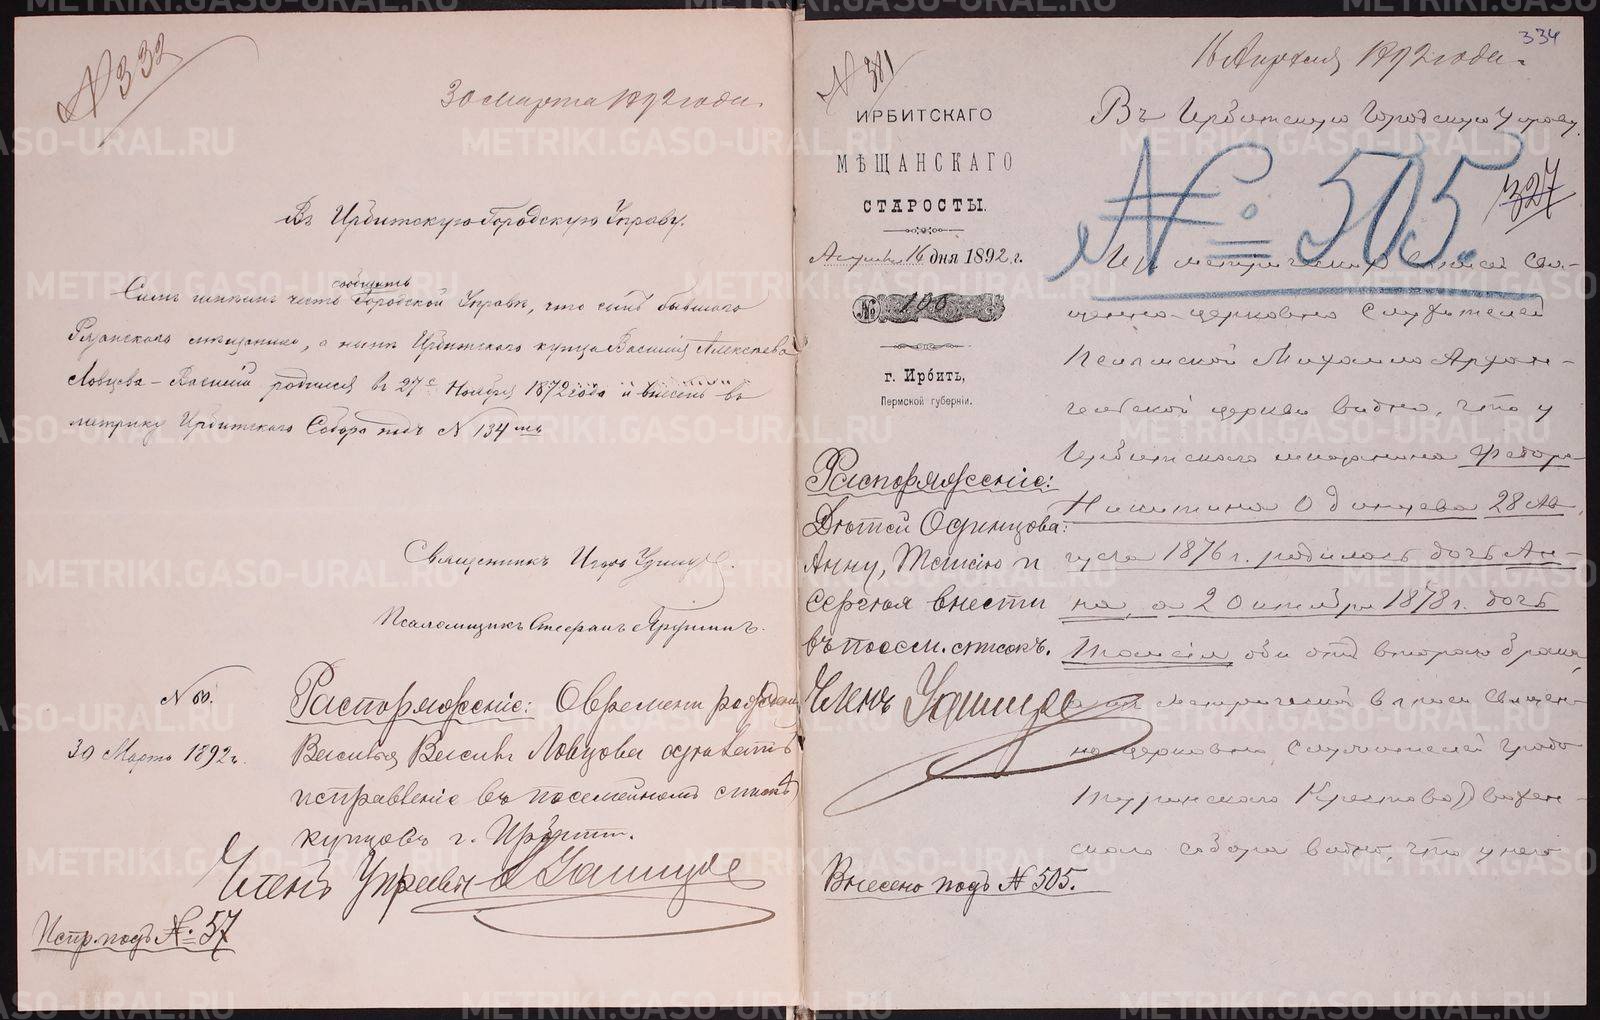 № 332
30 Марта 1892 года.
Въ Ирбитскую Городскую Управу.
Симъ имѣемъ честь сообщить Городской Управѣ, что сынъ бывшаго
Рязанского мѣщанина, а нынѣ Ирбитского купца Василія Алексѣева
Ловцева – Василій родился въ 27е Ноября 1872 года и внесенъ въ
метрику Ирбитского Собора подъ № 134 мъ
Священникъ Игорь
Псаломщикъ Стефанъ
№ 60.
30 Марта 1892 г.
Распоряженіе: О времени рожденія
Василья Васил. Ловцова сдѣлать
исправленіе въ посемейномъ спискѣ
купцовъ г. Ирбити.
Членъ Управы
Испр. подъ №. 57
334
№ 381
16 Апрѣля 1892 года.
ИРБИТСКАГО
МѢЩАНСКАГО
СТАРОСТЫ.
Апрѣля 16 дня 1892 г.
№ 100
г. Ирбить,
Пермской губерніи.
Распоряженіе:
Дѣтей Одинцова:
Анну, Таисію и
Сергѣя внести
въ посем. списокъ.
Членъ
Внесено подъ № 505.
Въ Ирбитскую Городскую Управу.
№ 505.
327
Изъ метрической записи Свя-
щенно-церковно Служителей
Михаило Архан-
гельской церкви видно, что у
Ирбитского мѣщанина Федора
Никитина Одинцова 28 Ав-
густа 1876 г. родилась дочь Ан-
на, а 2 октября 1878 г. дочь
Таисія обѣ отъ втораго брака,
а изъ метрической записи Священ-
но церковно Служителей Градо
Туринского Крестовоздвижен-
скаго собора видно, что у него